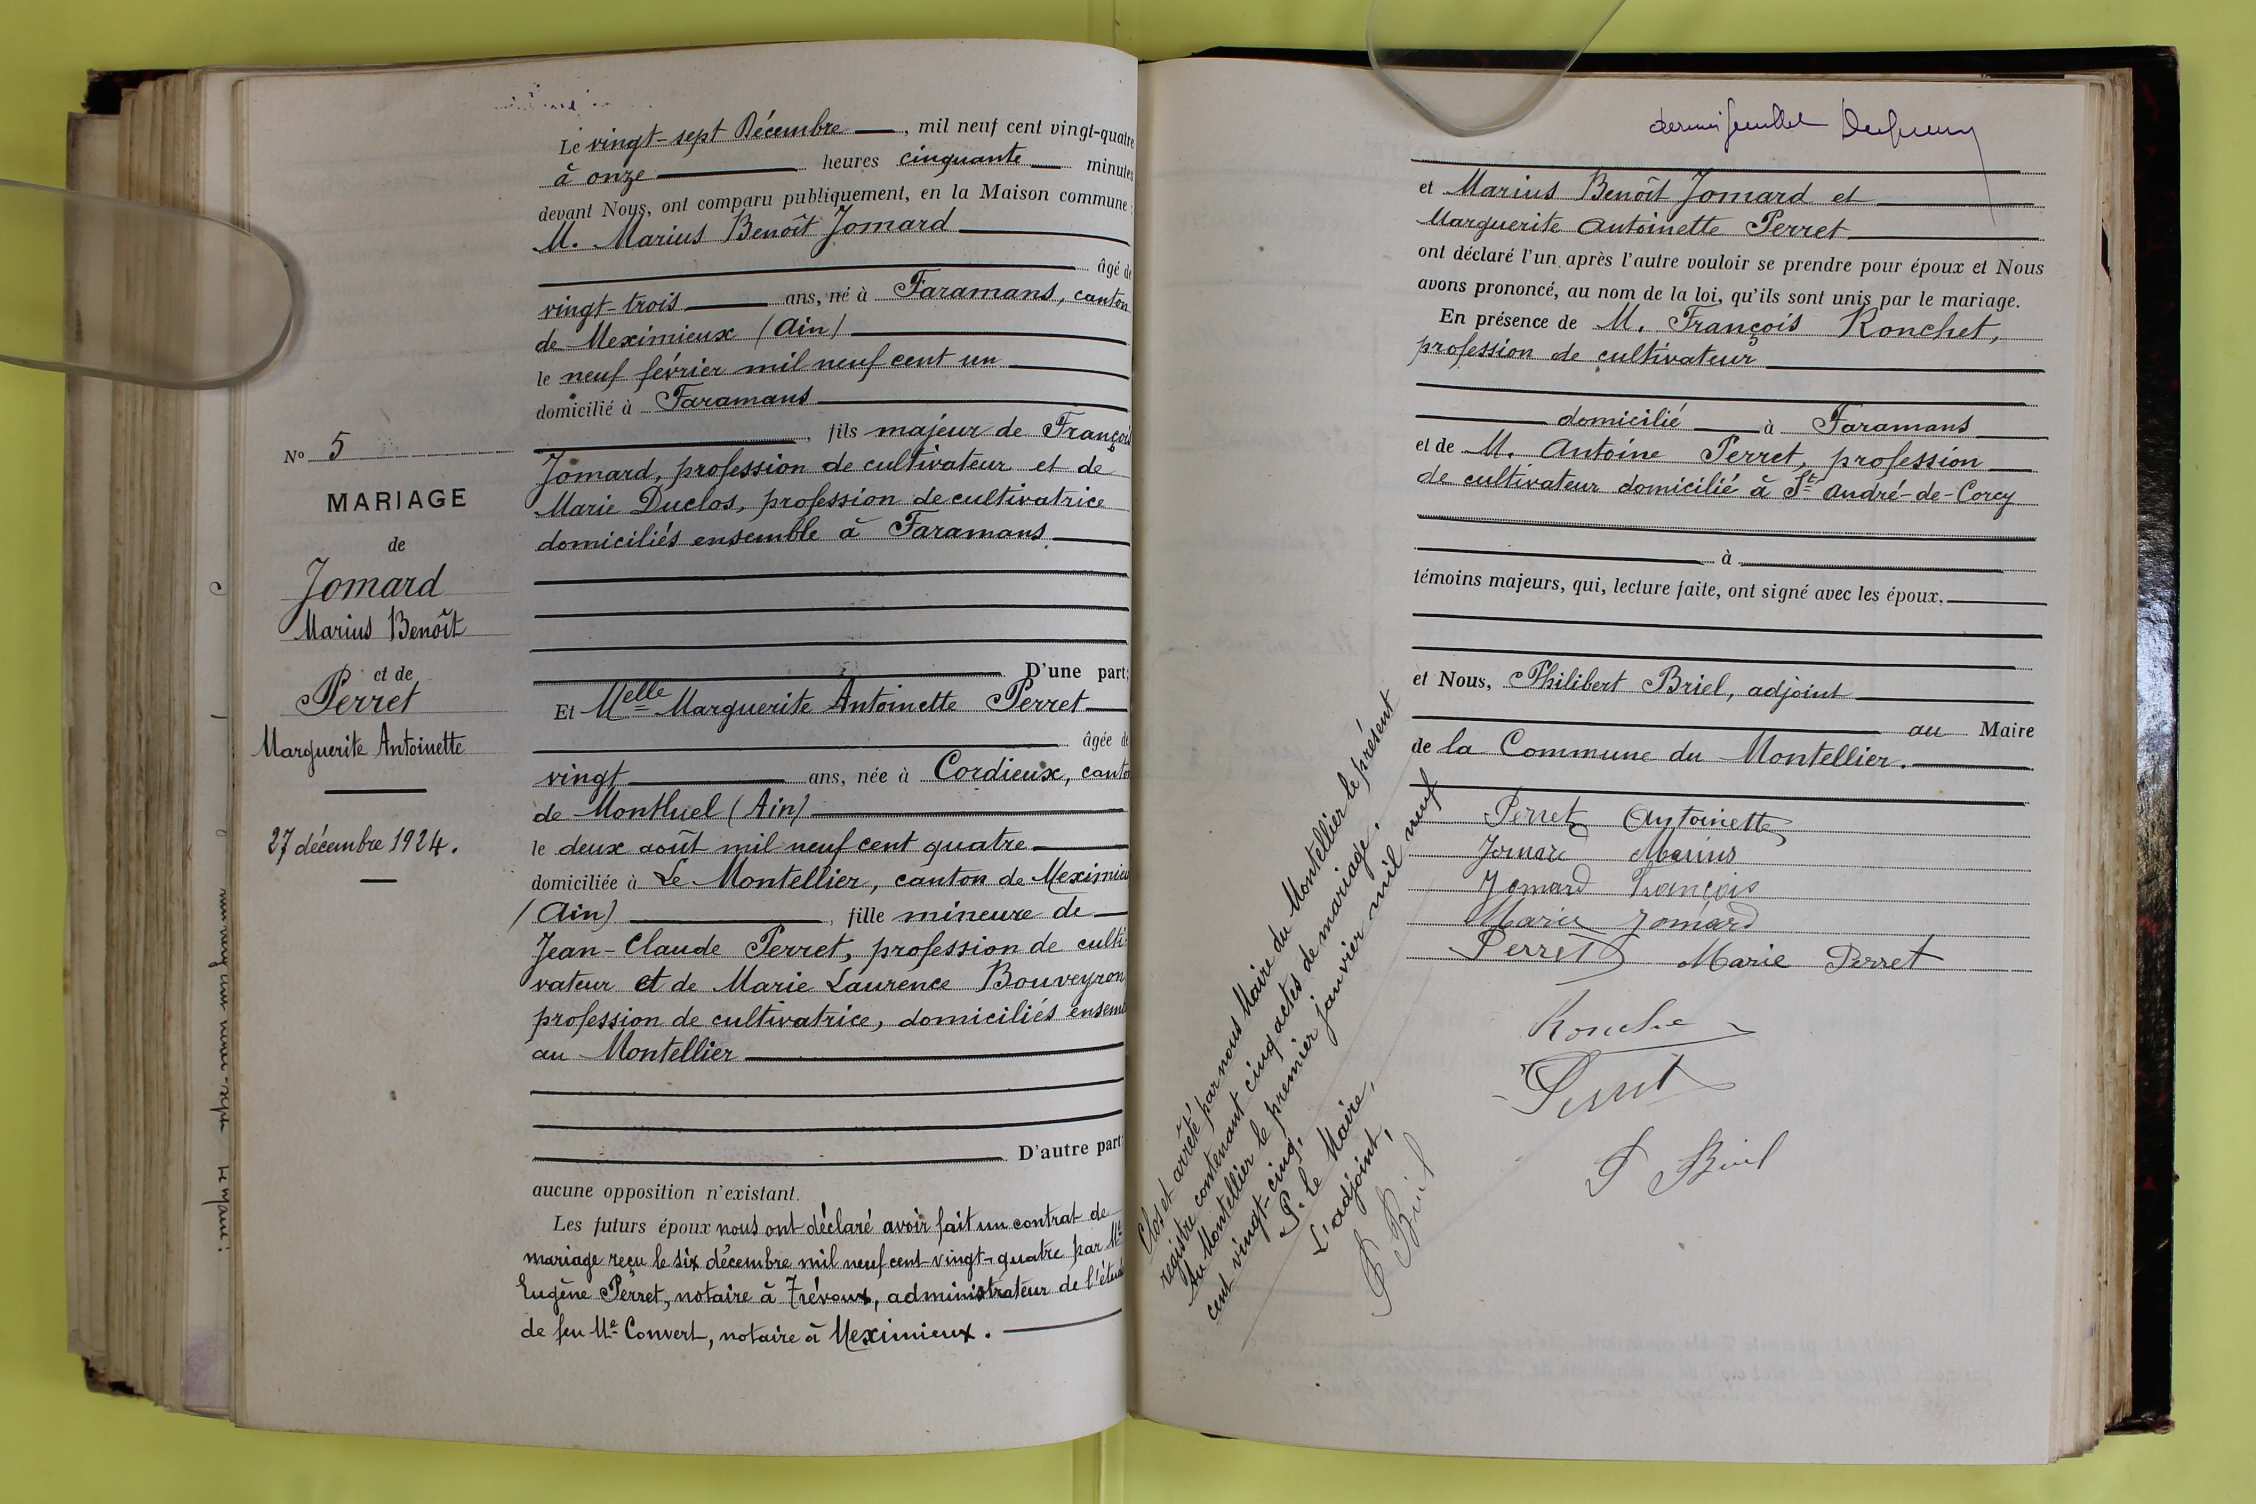 N° 5
MARIAGE
de
Jomard
Marius Benoît
et de
Perret
Marguerite Antoinette
27 décembre 1924.
Le vingt-sept Décembre, mil neuf cent vingt-quatre
à onze heures cinquante minutes
devant Nous, ont comparu publiquement, en la Maison commune :
M. Marius Benoît Jomard
âgé de
vingt-trois ans, né à Faramans, canton
de Meximieux (Ain)
le neuf février mil neuf cent un
domicilié à Faramans
, fils majeur de François
Jomard, profession de cultivateur et de
Marie Duclos, profession de cultivatrice
domiciliés ensemble à Faramans
D'une part;
Et Melle Marguerite Antoinette Perret
âgée de
vingt ans, née à Cordieux, canton
de Montluel (Ain)
le deux août mil neuf cent quatre
domiciliée à Le Montellier, canton de Meximieu
(Ain), fille mineure de
Jean-Claude Perret, profession de culti-
vateur et de Marie Laurence Bouveyron
profession de cultivatrice, domiciliés ensemb
au Montellier
D'autre part;
aucune opposition n'existant.
Les futurs époux nous ont déclaré avoir fait un contrat de
mariage reçu le six décembre mil neuf cent-vingt-quatre par Me
Eugène Perret, notaire à Trévoux, administrateur de l'étude
de feu Me Convert, notaire à Meximieux.
dernier feuillet
et Marius Benoît Jomard et
Marguerite Antoinette Perret
ont déclaré l'un après l'autre vouloir se prendre pour époux et Nous
avons prononcé, au nom de la loi, qu'ils sont unis par le mariage.
En présence de M. François Ronchet,
profession de cultivateur
domicilié à Faramans
et de M. Antoine Perret, profession
de cultivateur domicilié à St André-de-Corcy
à
témoins majeurs, qui, lecture faite, ont signé avec les époux.
et Nous, Philibert Briel, adjoint
au Maire
de la Commune du Montellier.
Perret Antoinette
Jomard Marius
Jomard François
Marie Jomard
Perret Marie Perret
Ronche
Perret
P Briel
Clos et arrêté par nous Maire du Montellier le présent
registre contenant cinq actes de mariage.
Au Montellier le premier janvier mil neuf
cent vingt-cinq.
Pr le Maire,
L'adjoint,
P Briel